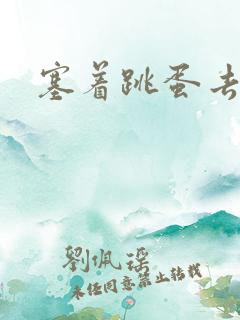 塞着跳蛋去
劉佩瑶
未经同意禁止转载